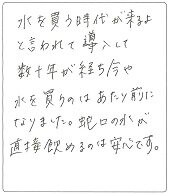 水を買う時代が来るよ
と言われて導入して
数十年が経ち今や
水を買うのはあたり前に
なりました。蛇口の水が
直接飲めるのは安心です。